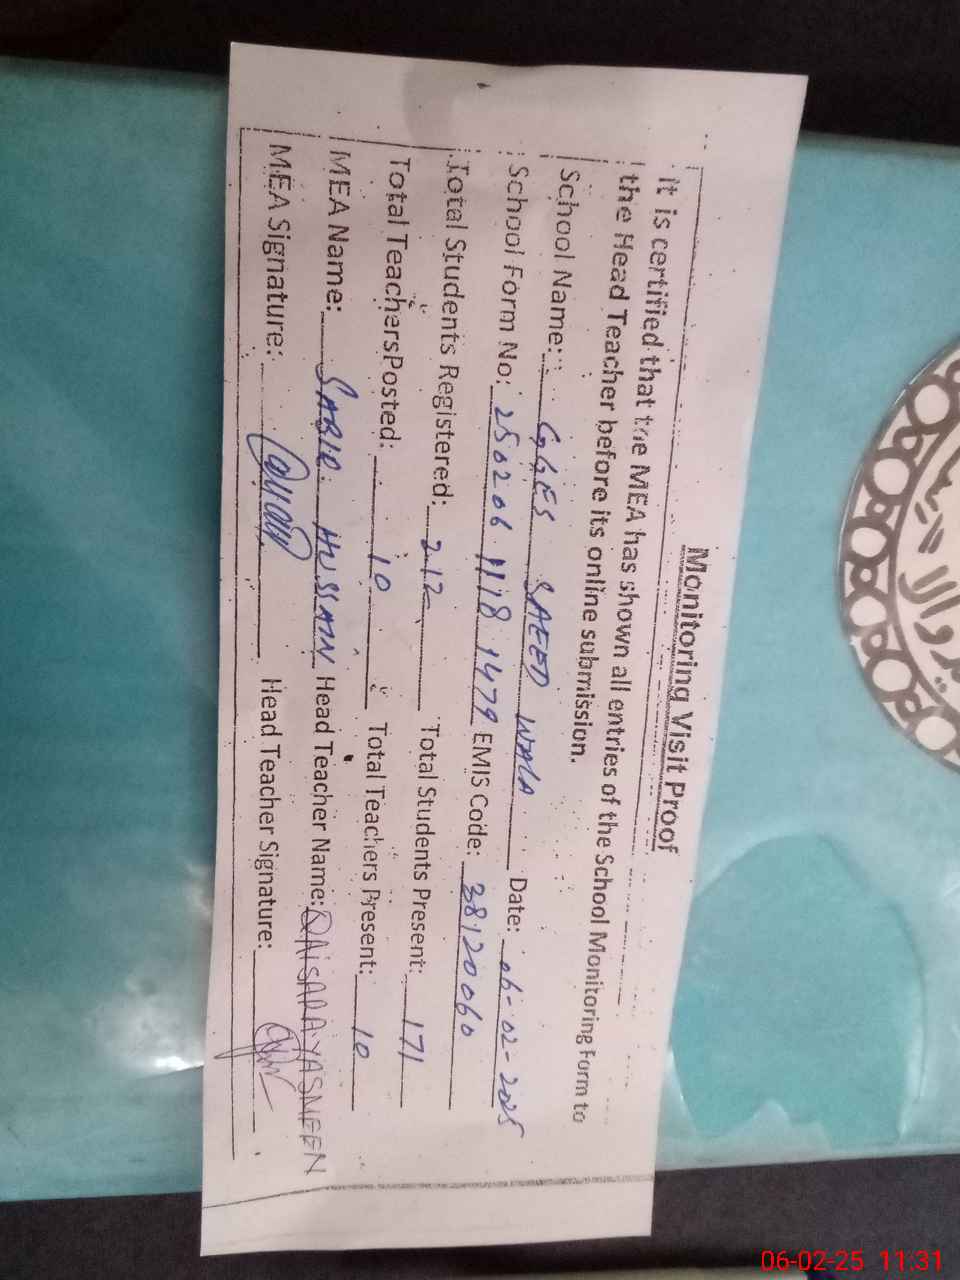 Monitoring Visit Proof
It is certified that the MEA has shown all entries of the School Monitoring Form to
the Head Teacher before its online submission.
School Name: GGES SAEED WALA Date: 06-02-2025
School Form No: 250206 1118 1479 EMIS Code: 38120060
Total Students Registered: 212 Total Students Present: 171
Total Teachers Posted: 10 Total Teachers Present: 10
MEA Name: SABIR HUSSAIN Head Teacher Name: QAISARA YASMEEN
MEA Signature: Head Teacher Signature:
06-02-25 11:31